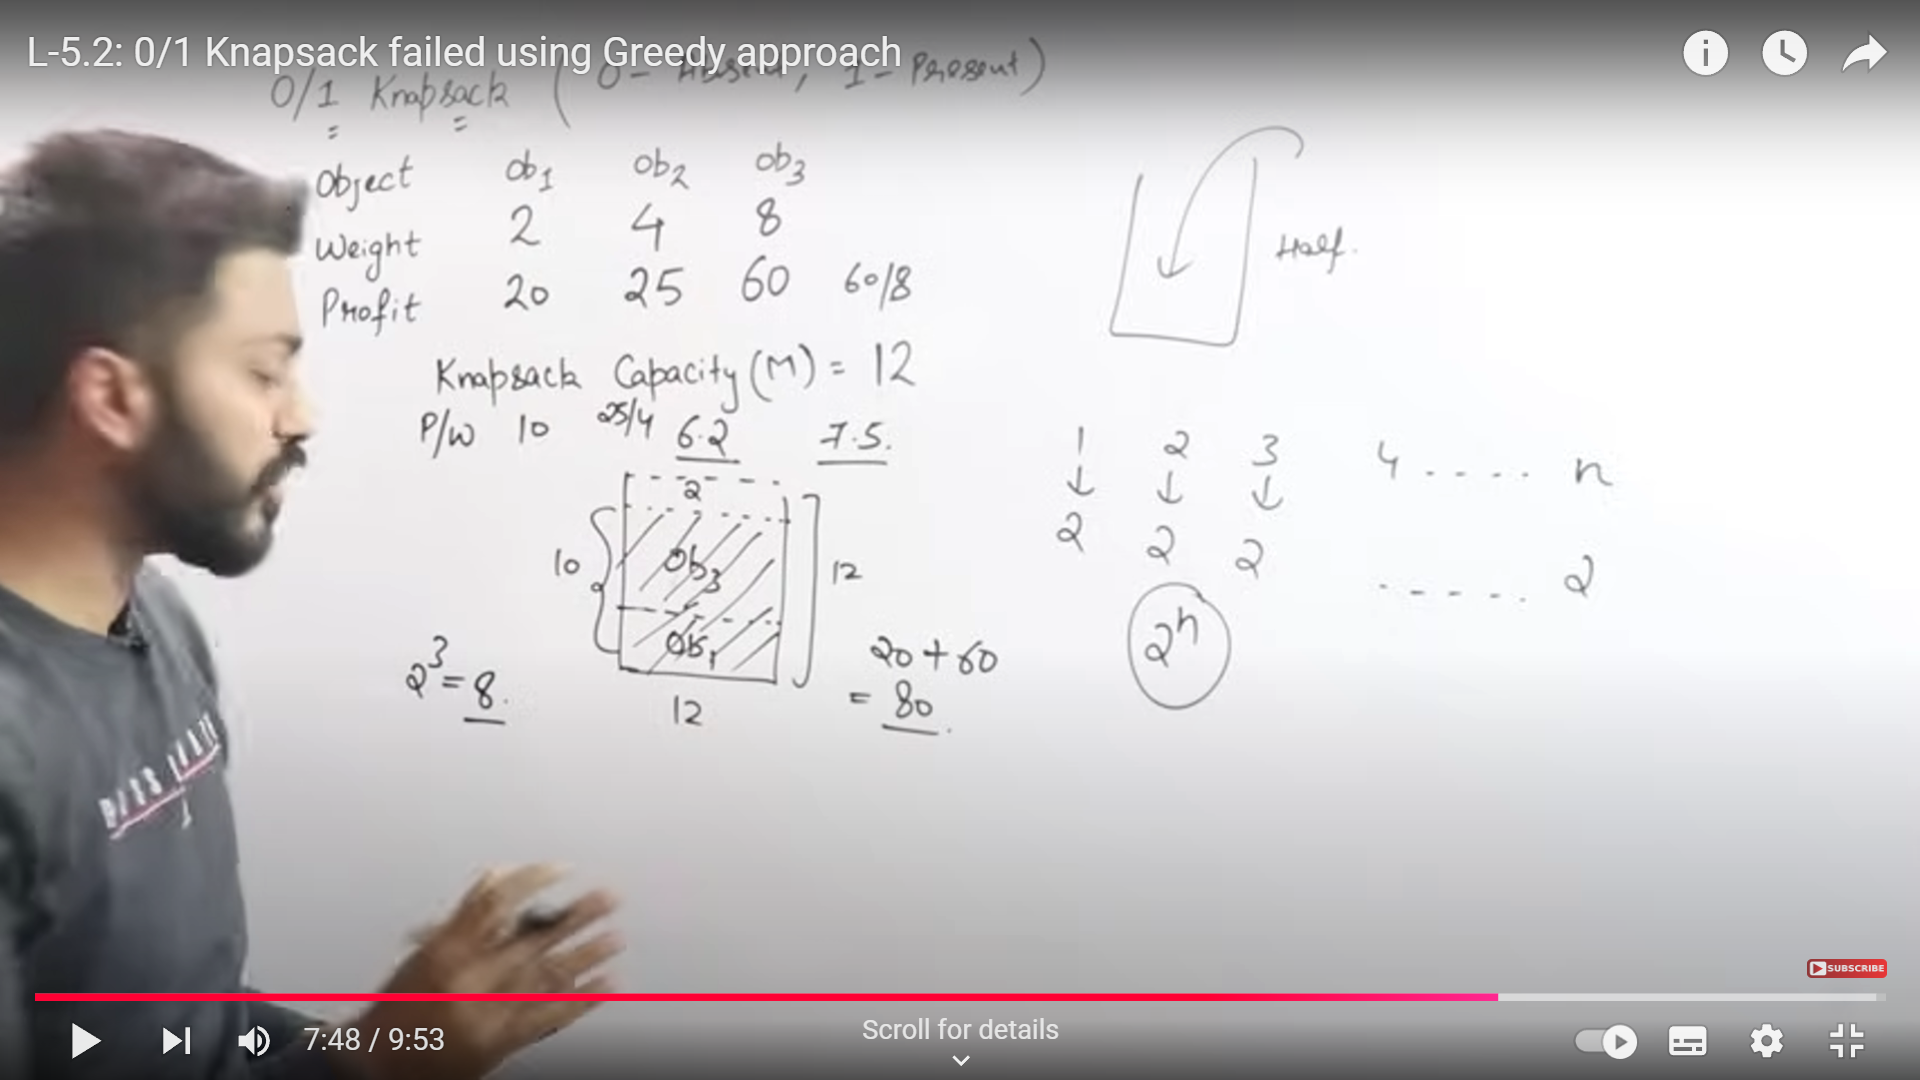 L-5.2: 0/1 Knapsack failed using Greedy approach
0/1 Knapsack (0 - Absent, 1 - Present)
Object ob1 ob2 ob3
Weight 2 4 8
Profit 20 25 60 60/8
Half.
Knapsack Capacity (M) = 12
P/W 10 25/4 6.2 7.5.
1 2 3 4 .... n
2 2 2 ..... 2
2ⁿ
2
10 Ob3 12
Ob1
12
2³ = 8.
20 + 60
= 80.
SUBSCRIBE
7:48 / 9:53
Scroll for details